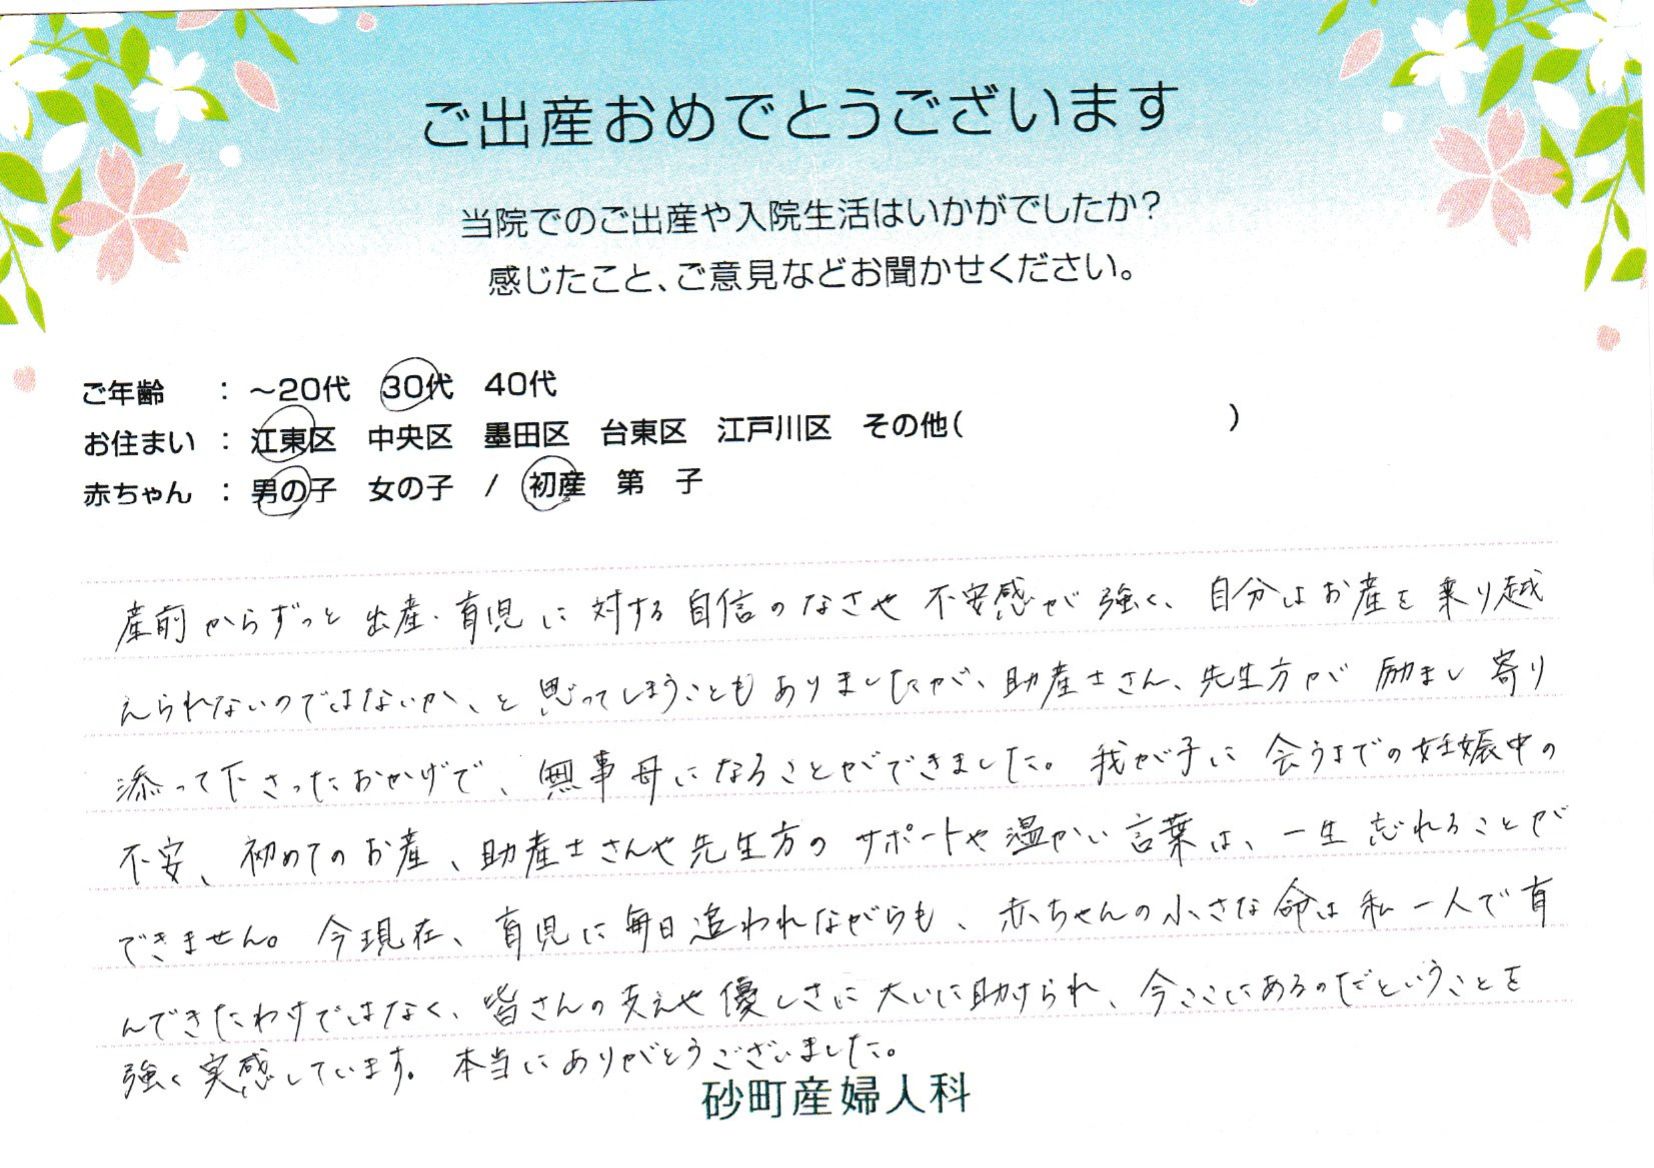 ご出産おめでとうございます
当院でのご出産や入院生活はいかがでしたか?
感じたこと、ご意見などお聞かせください。
ご年齢 : ～20代 30代 40代
お住まい : 江東区 中央区 墨田区 台東区 江戸川区 その他( )
赤ちゃん : 男の子 女の子 / 初産 第 子
産前からずっと出産・育児に対する自信のなさや不安感が強く、自分はお産を乗り越
えられないのではないか、と思ってしまうこともありましたが、助産士さん、先生方が励まし寄り
添って下さったおかげで、無事母になることができました。我が子に会うまでの妊娠中の
不安、初めてのお産、助産士さんや先生方のサポートや温かい言葉は、一生忘れることが
できません。今現在、育児に毎日追われながらも、赤ちゃんの小さな命は私一人で育
んできたわけではなく、皆さんの支えや優しさに大いに助けられ、今ここにあるのだということを
強く実感しています。本当にありがとうございました。
砂町産婦人科